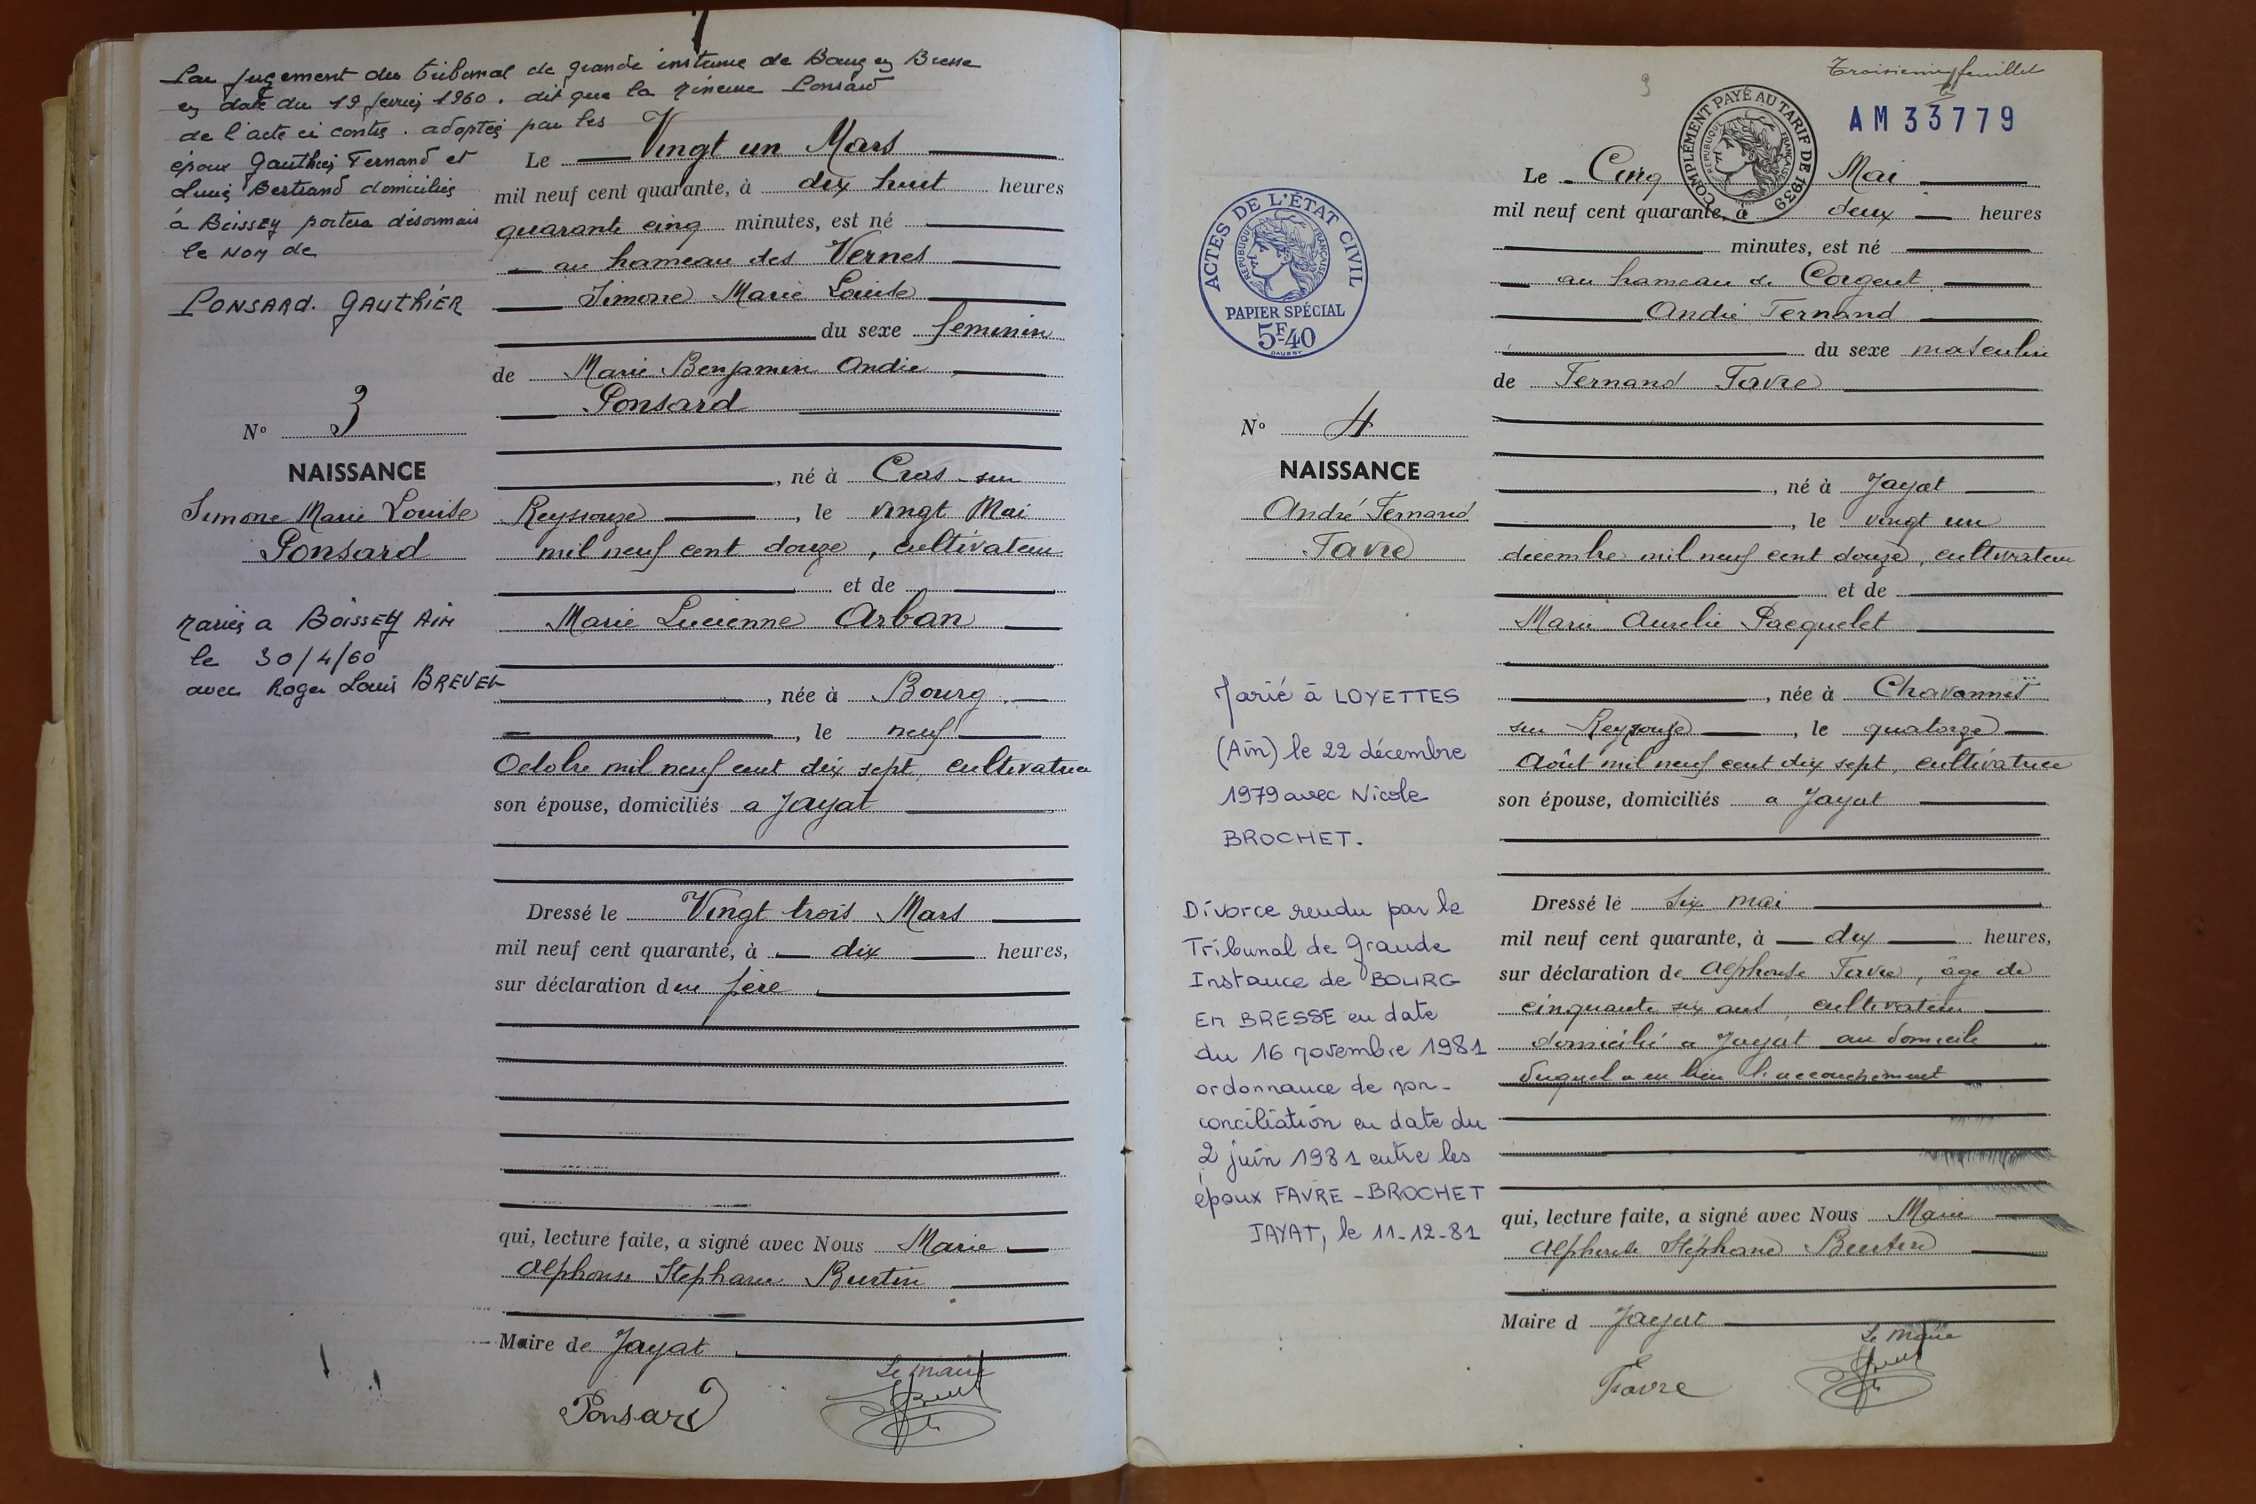 Par jugement du tribunal de grande instance de Bourg en Bresse
en date du 19 février 1960. dit que la mineure Ponsard
de l'acte ci contre. adoptée par les
époux Gauthier Fernand et
Bertrand domiciliés
à Boissey portera désormais
le NOM de
PONSARD. GAUTHIER
N° 3
NAISSANCE
Simone Marie Louise
Ponsard
Mariée a BOISSEY AIN
le 30/4/60
avec Roger Louis BREVET
Le Vingt un Mars
mil neuf cent quarante, à dix huit heures
quarante cinq minutes, est né
au hameau des Vernes
Simone Marie Louise
du sexe feminin
de Marie Benjamin André
Ponsard
, né à Cras-sur
Reyssouze, le vingt Mai
mil neuf cent douze, cultivateur
et de
Marie Lucienne Arban
, née à Bourg
, le neuf
Octobre mil neuf cent dix sept, cultivatrice
son épouse, domiciliés a Jayat
Dressé le Vingt trois Mars
mil neuf cent quarante, à dix heures,
sur déclaration du père
qui, lecture faite, a signé avec Nous Marie
Alphonse Stephane Burtin
Maire de Jayat
Le maire
Ponsard
Troisième feuillet
3
AM 33779
COMPLÉMENT PAYÉ AU TARIF DE 1939
RÉPUBLIQUE FRANÇAISE
ACTES DE L'ÉTAT CIVIL
RÉPUBLIQUE FRANÇAISE
PAPIER SPÉCIAL
5F40
N° 4
NAISSANCE
André Fernand
Favre
Marié à LOYETTES
(Ain) le 22 décembre
1979 avec Nicole
BROCHET.
Divorce rendu par le
Tribunal de Grande
Instance de BOURG
En BRESSE en date
du 16 novembre 1981
ordonnance de non-
conciliation en date du
2 juin 1981 entre les
époux FAVRE-BROCHET
JAYAT, le 11-12-81
Le Cinq Mai
mil neuf cent quarante, à deux heures
minutes, est né
au hameau de Corgent
André Fernand
du sexe masculin
de Fernand Favre
, né à Jayat
, le vingt un
décembre mil neuf cent douze, cultivateur
et de
Marie Aurelie Pacquelet
, née à Chavannes
sur Reyssouze, le quatorze
Août mil neuf cent dix sept, cultivatrice
son épouse, domiciliés a Jayat
Dressé le six mai
mil neuf cent quarante, à dix heures,
sur déclaration de Alphonse Favre, âge de
cinquante six ans, cultivateur
domicilié a Jayat au domicile
duquel a eu lieu l'accouchement
qui, lecture faite, a signé avec Nous Marie
Alphonse Stéphane Burtin
Maire d Jayat
Le maire
Favre